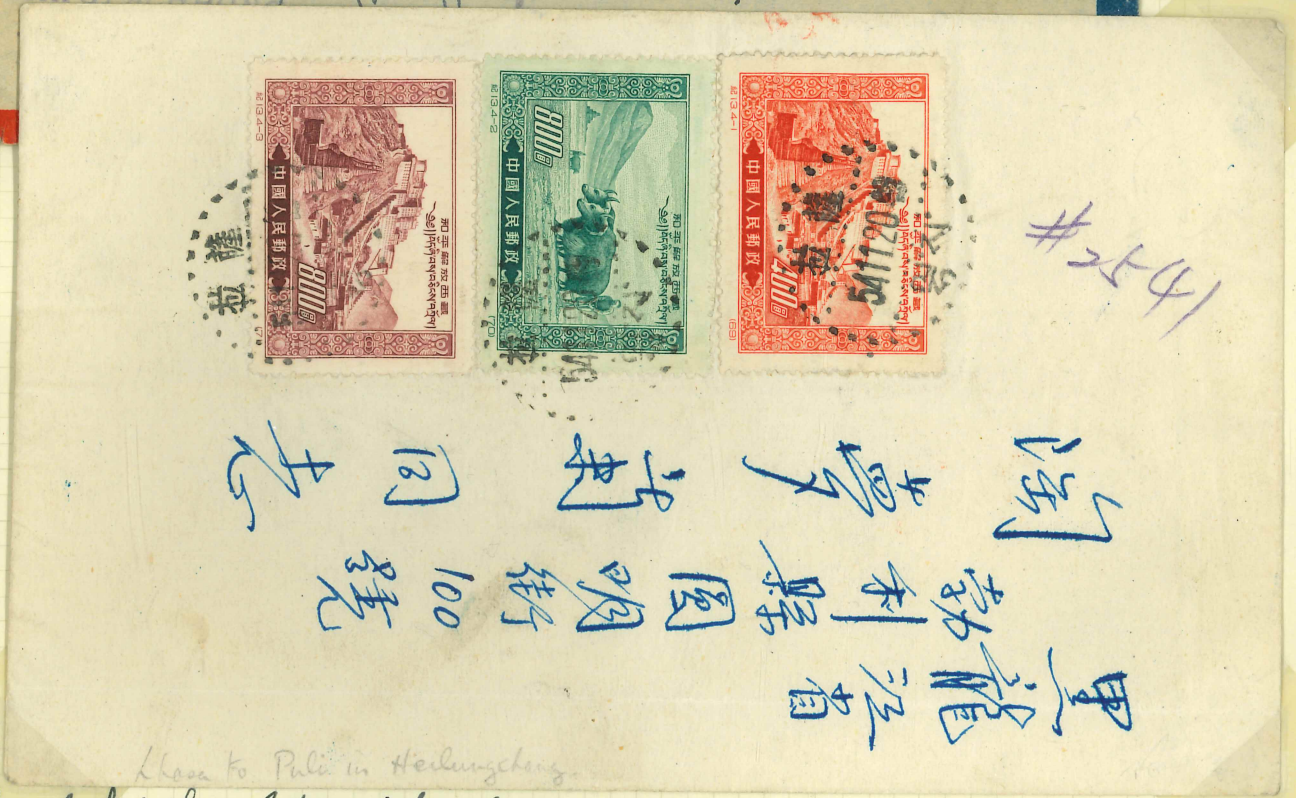 紀13.4-1
中國人民郵政
400圓
和平解放西藏
(69)
紀13.4-2
中國人民郵政
800圓
和平解放西藏
(70)
紀13.4-3
中國人民郵政
800圓
和平解放西藏
拉薩
54.11.20
#2541
黑龍江省
勃利縣 明街100號
夢 同志
Lhasa to Puli in Heilungchang